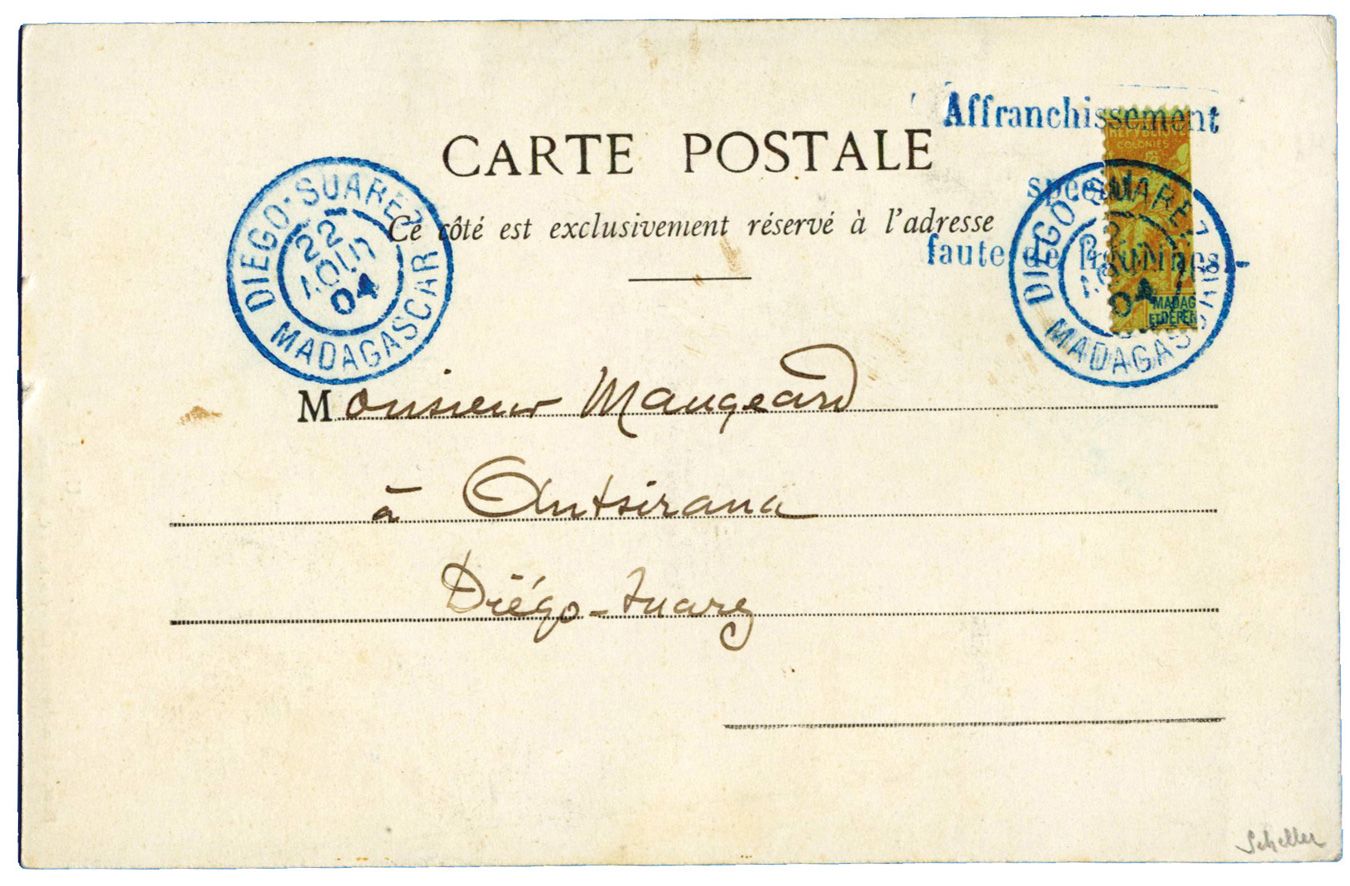 Affranchissement
spécial
faute de figurines.-
REPUBLIQUE
COLONIES
MADAG
ET DEPEN
DIEGO-SUAREZ
22
AOUT
04
MADAGASCAR
DIEGO-SUAREZ
22
AOUT
04
MADAGASCAR
CARTE POSTALE
Ce côté est exclusivement réservé à l'adresse
Monsieur Maugeard
à Antsirana
Diégo-Suarez
Scheller